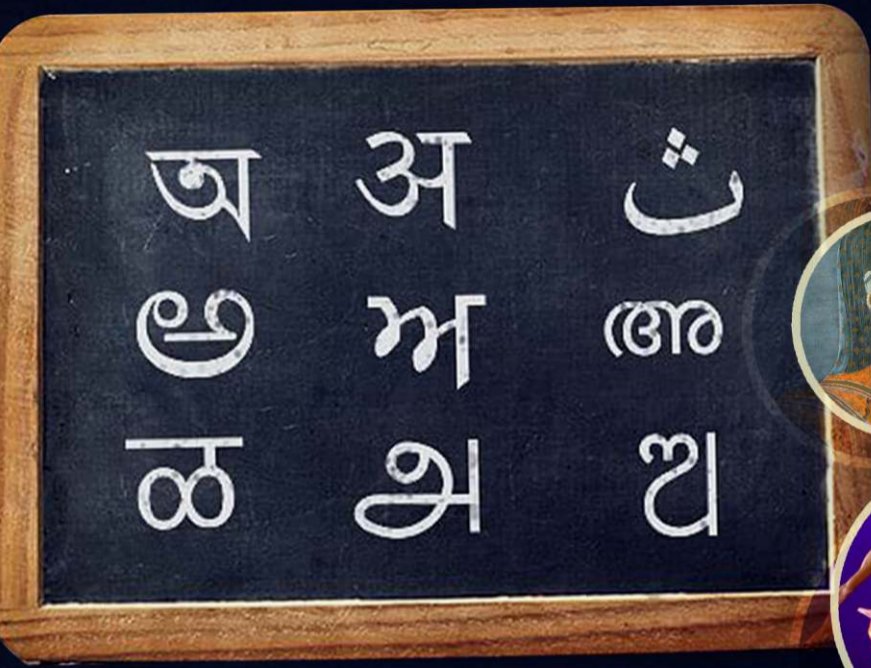 অ अ ث
అ ਅ അ
ळ அ ଅ